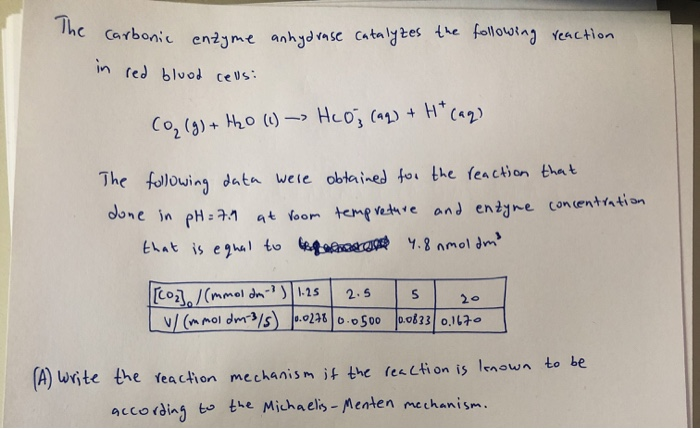 The carbonic enzyme anhydrase catalyzes the following reaction
in red blood cells:
CO₂ (g) + H₂O (l) —> HCO₃⁻ (aq) + H⁺ (aq)
The following data were obtained for the reaction that
done in pH = 7.1 at room tempreture and enzyme concentration
that is equal to 4.8 nmol dm³
[CO₂]₀ / (mmol dm⁻³) 1.25 2.5 5 20
V/ (mmol dm⁻³/s) 0.0278 0.0500 0.0833 0.1670
(A) Write the reaction mechanism if the reaction is known to be
according to the Michaelis-Menten mechanism.